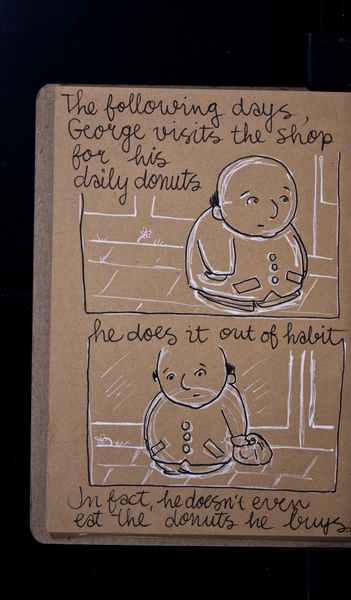 The following days,
George visits the shop
for his
daily donuts
he does it out of habit
In fact, he doesn't even
eat the donuts he buys...